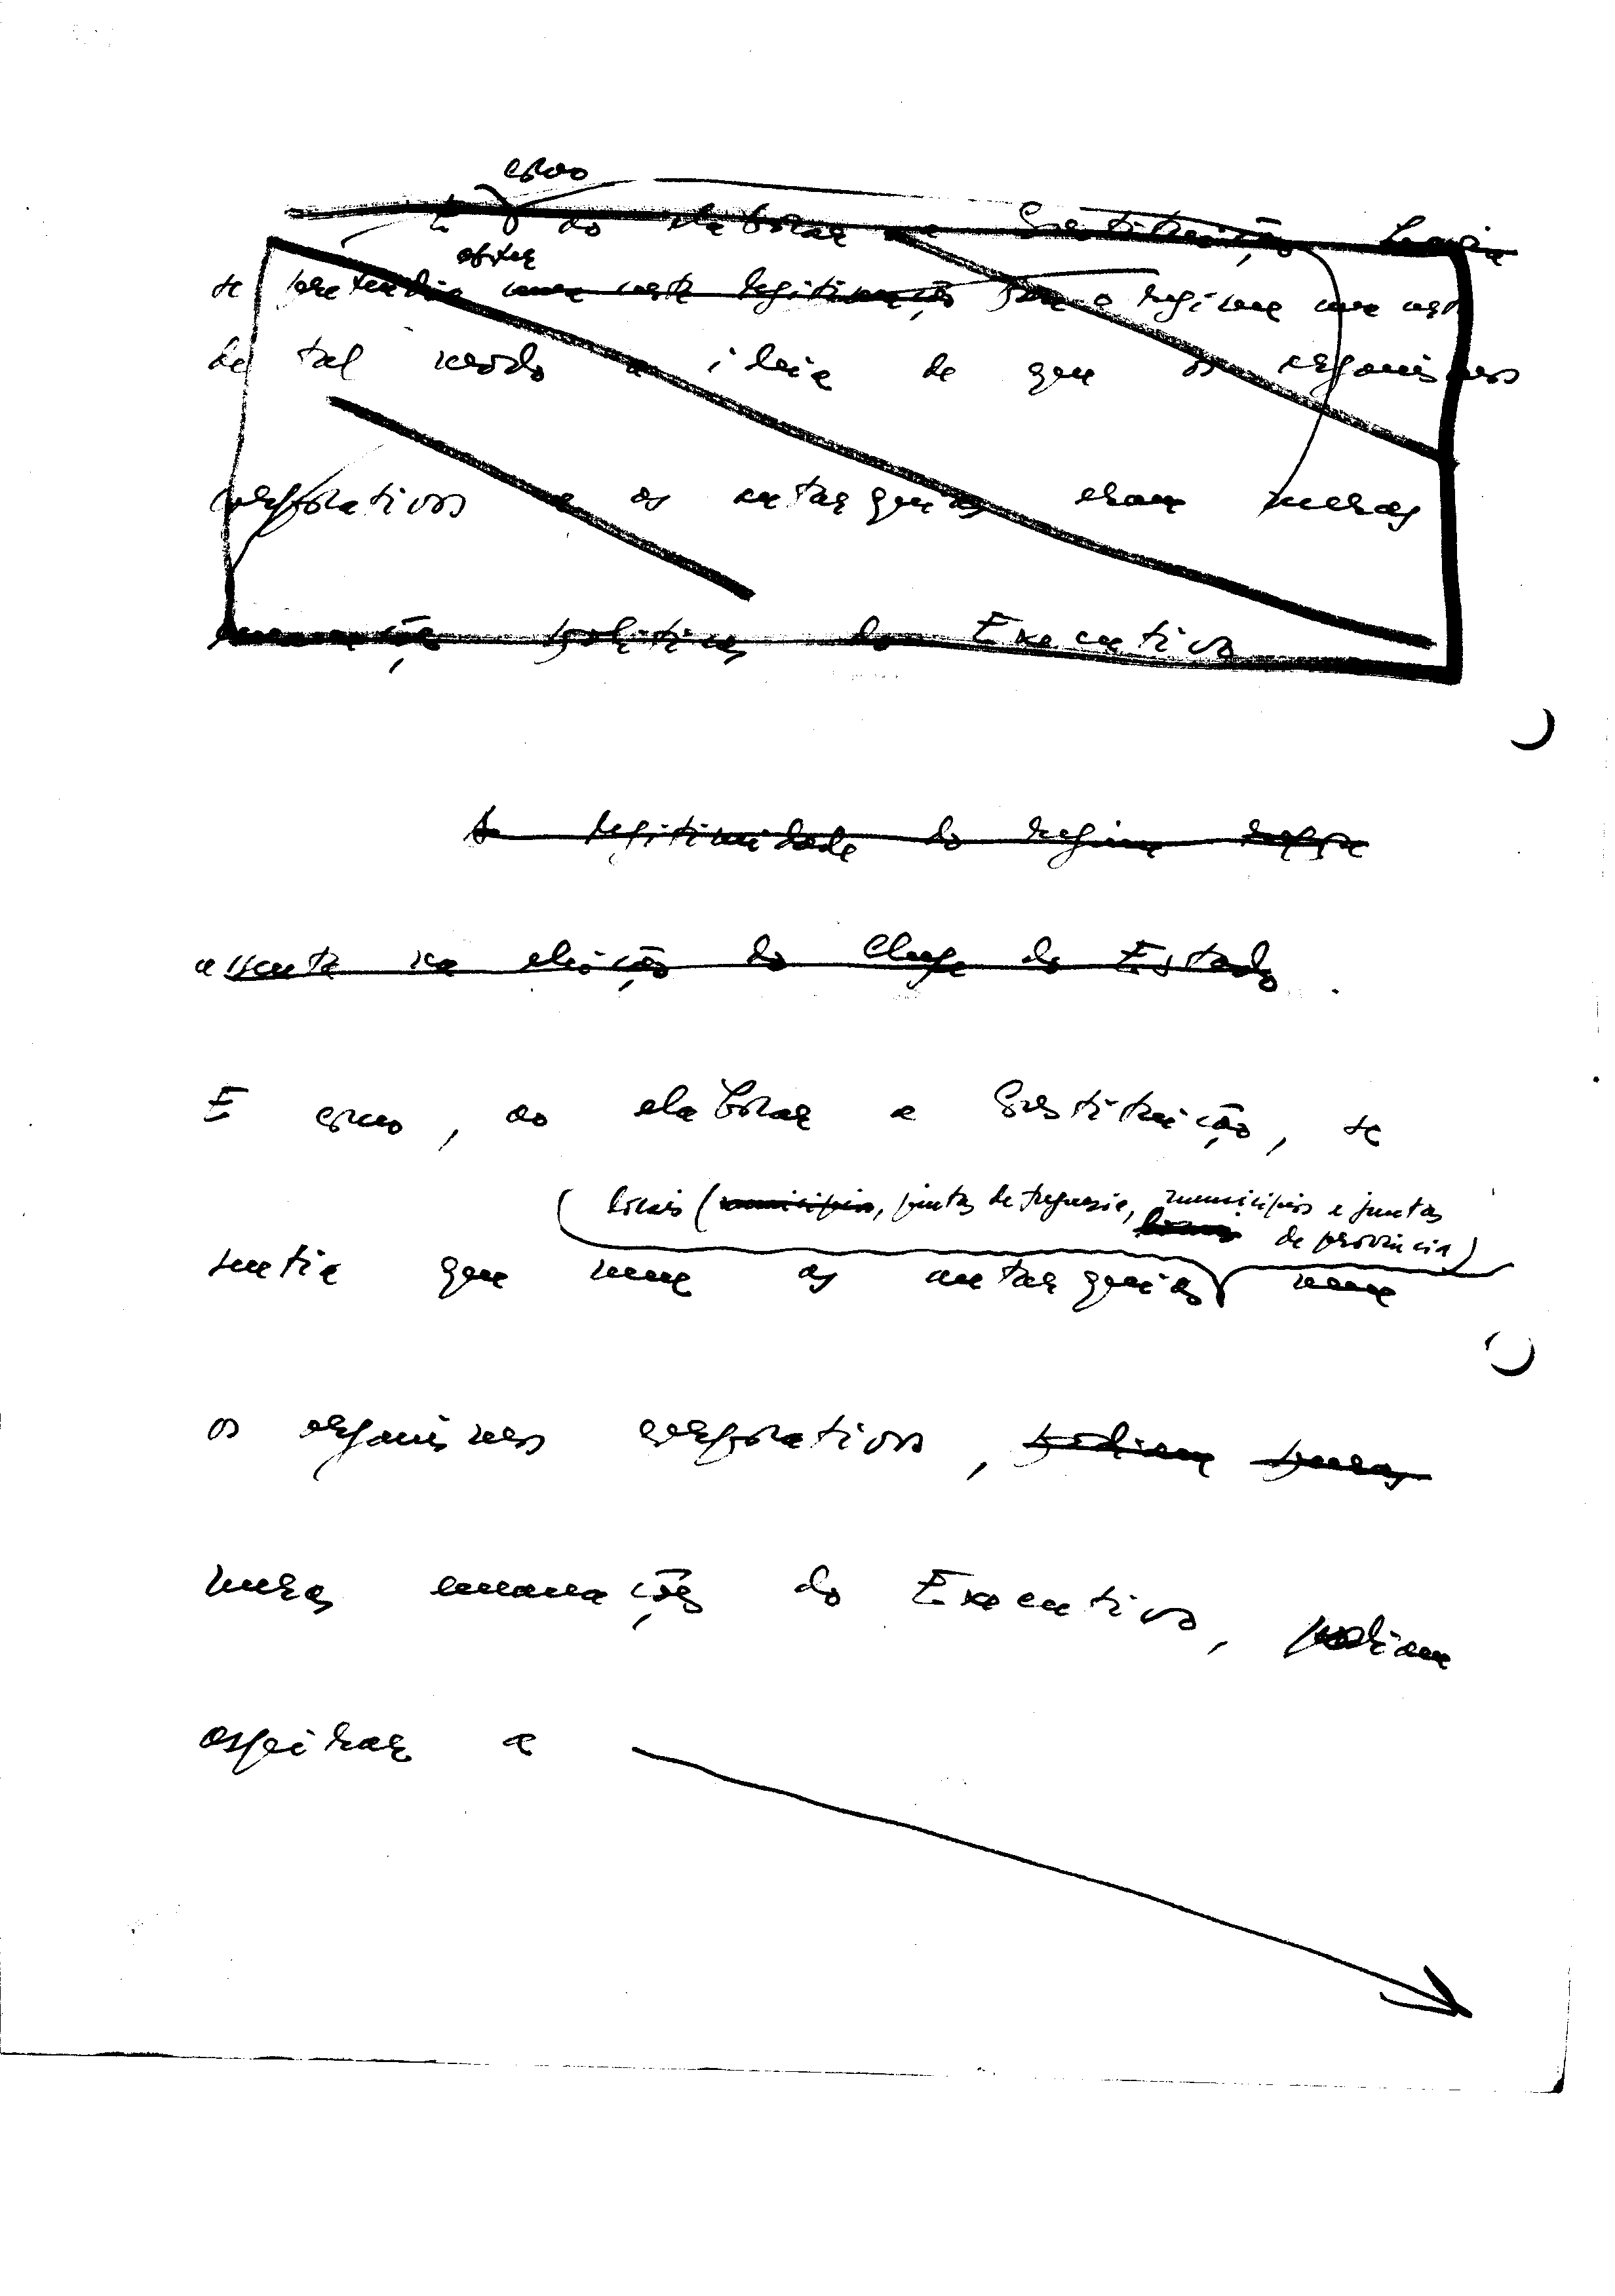 como
E ao elaborar a Constituição havia
obter
se pretendia uma certa legitimação para o regime uma cert
de tal modo a ideia de que os organismos
corporativos e as autarquias eram meras
emanações políticas do Executivo
A legitimidade do regime
assenta na eleição do Chefe do Estado.
E como, ao elaborar a Constituição, se
locais (municípios, juntas de freguesia, municípios e juntas
de província)
sentia que nem as autarquias nem
os organismos corporativos, podiam
meras emanações do Executivo, podiam
aspirar a